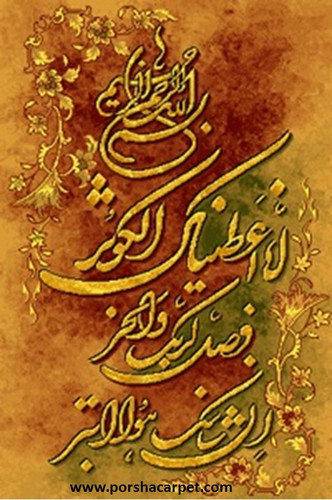 بسم الله الرحمن الرحیم
انا اعطیناک الکوثر
فصل لربک وانحر
ان شانئک هو الابتر
www.porshacarpet.com